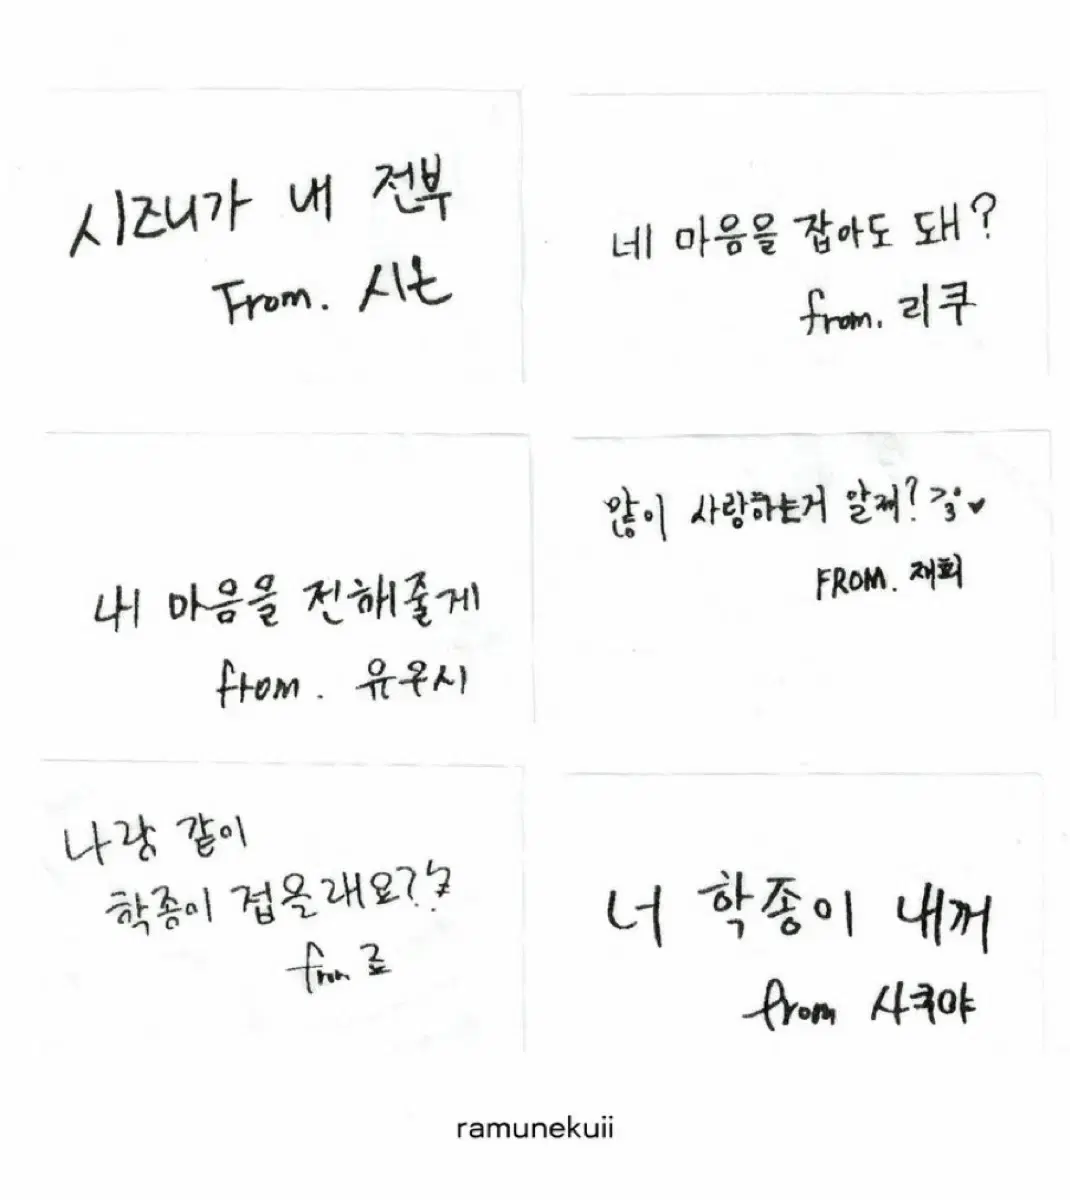 시즈니가 내 전부
From. 시온
네 마음을 잡아도 돼?
from. 리쿠
내 마음을 전해줄게
from. 유우시
많이 사랑하는거 알제? >3•♥
FROM. 재희
나랑 같이
학종이 접을래요??
from 료
너 학종이 내꺼
from 사쿠야
ramunekuii